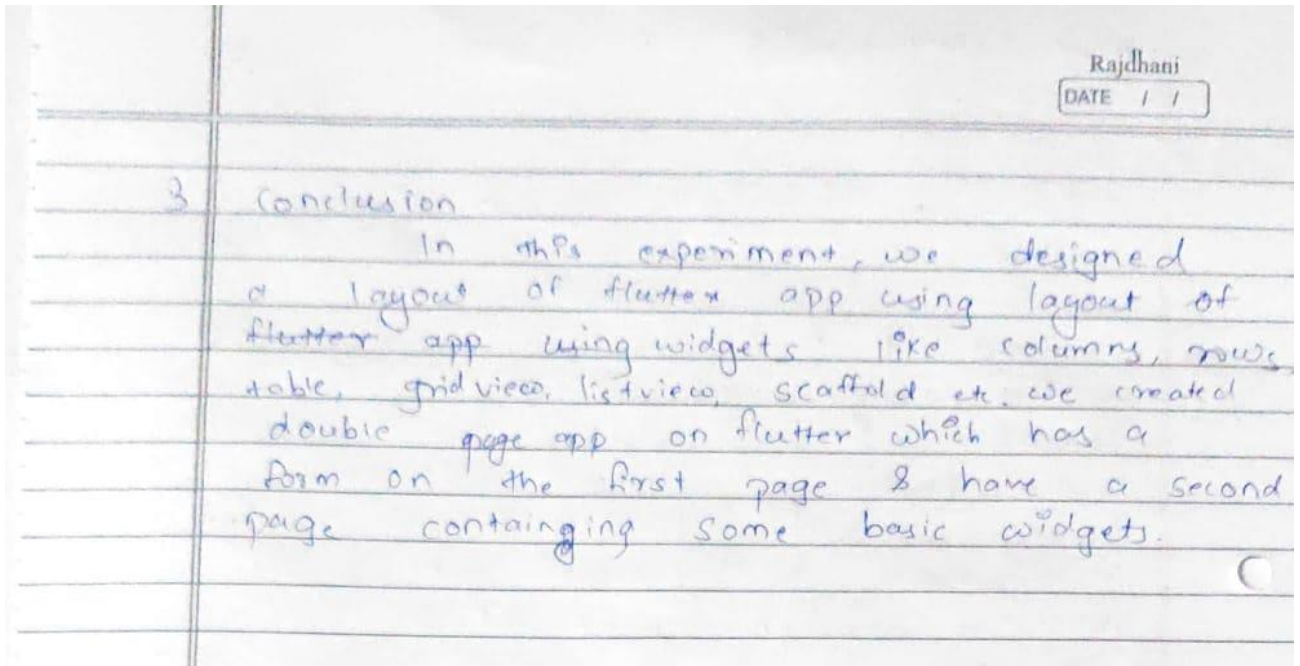 Rajdhani
DATE / /
3 Conclusion
In this experiment, we designed
a layout of flutter app using layout of
flutter app using widgets like columns, rows,
table, gridview, listview, scaffold etc. we created
double page app on flutter which has a
form on the first page & have a second
page containging some basic widgets.